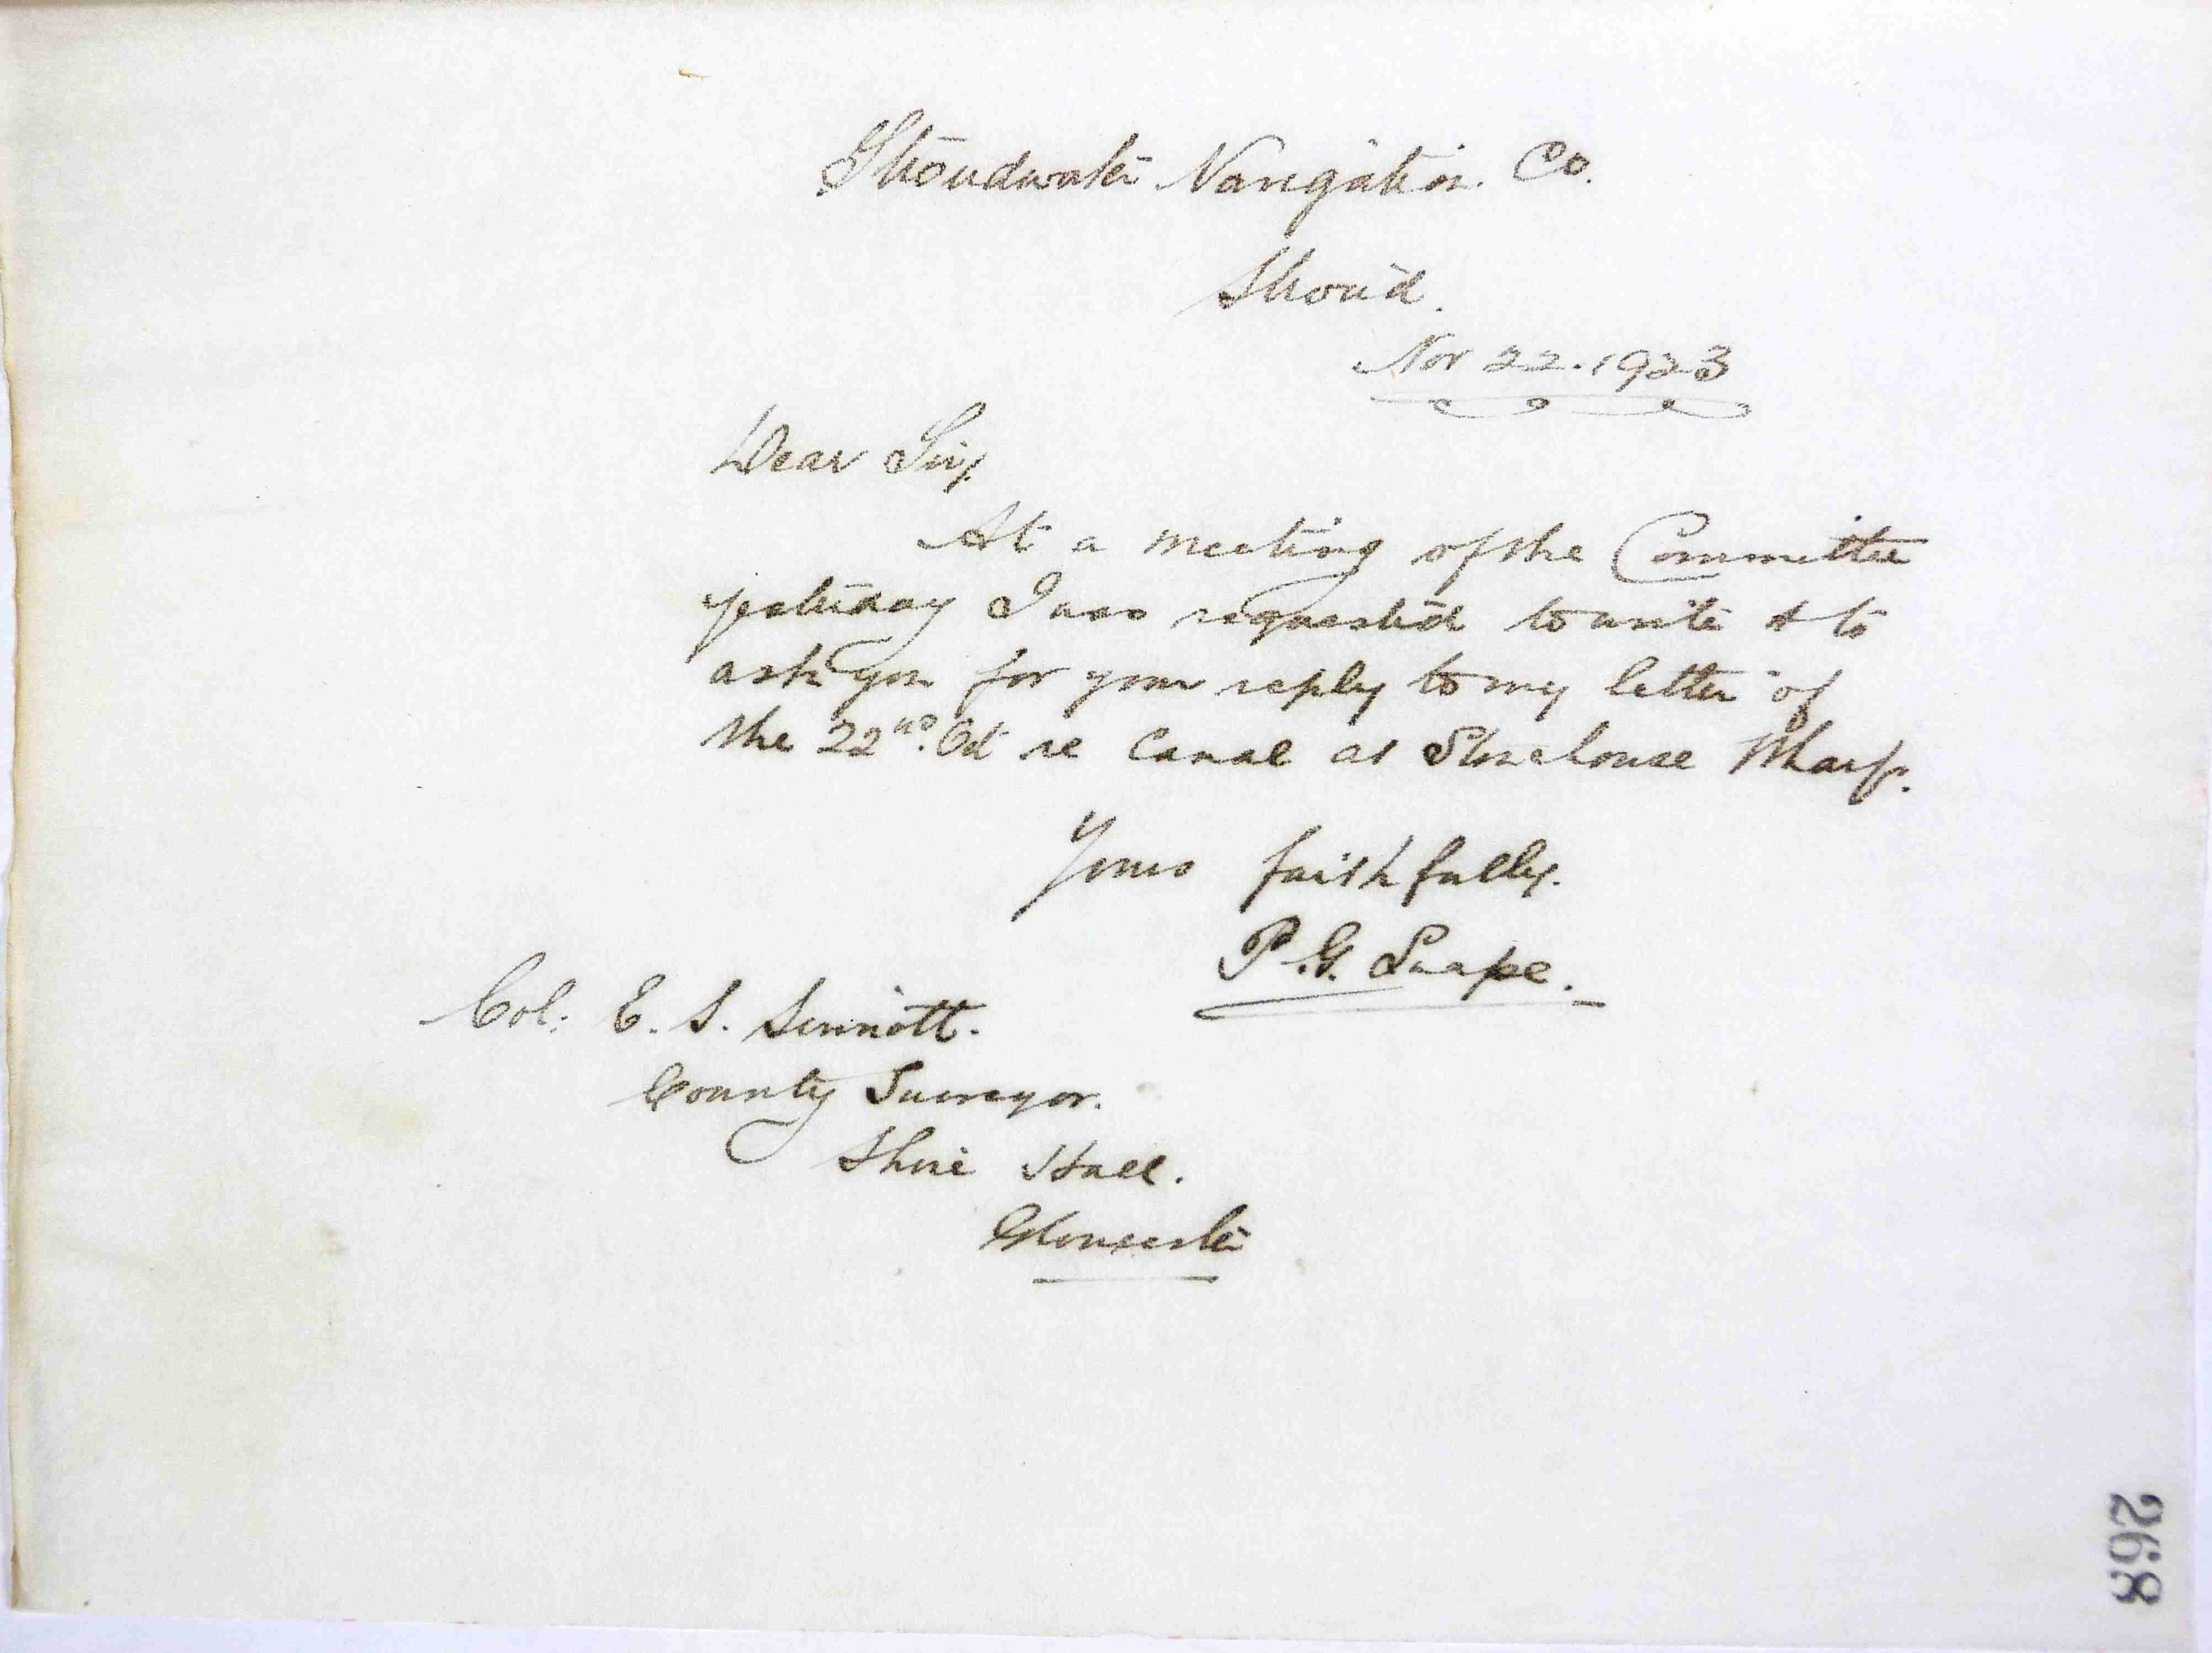 Stroudwater Navigation Co.
Stroud.
Nov 22. 1923
Dear Sir,
At a meeting of the Committee
yesterday I was requested to write & to
ask you for your reply to my letter of
the 22nd. Oct re Canal at Stonehouse Wharf.
Yours faithfully.
P. G. Snape.
Col: E. S. Sinnott.
County Surveyor.
Shire Hall.
Gloucester
268